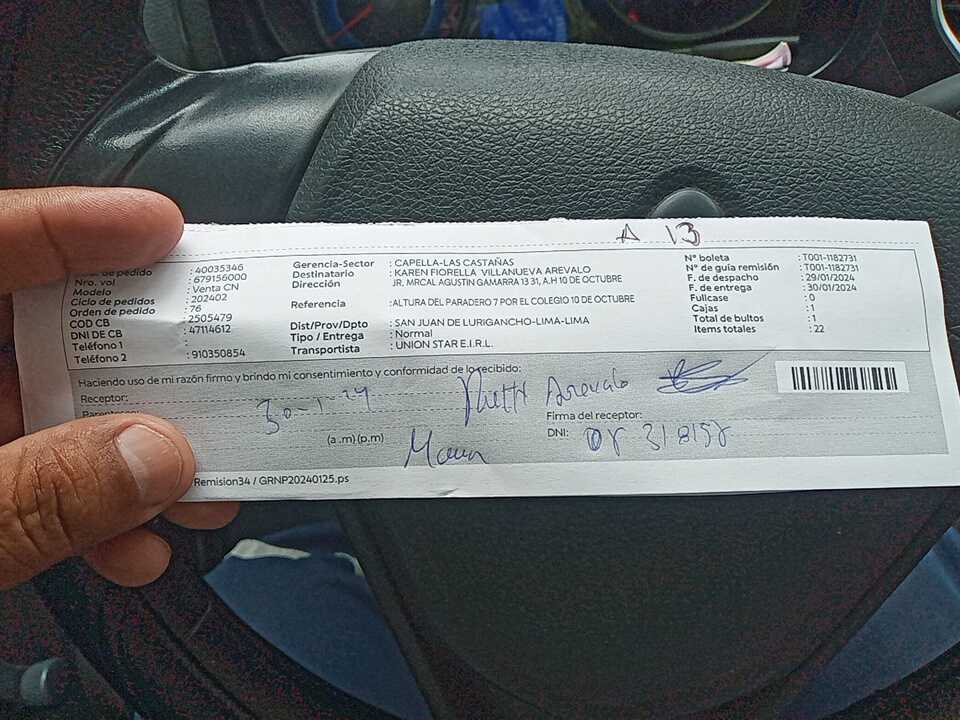 A 13
de pedido : 40035346
Nro. vol : 679156000
Modelo : Venta CN
Ciclo de pedidos : 202402
Orden de pedido : 76
COD CB : 2505479
DNI DE CB : 47114612
Teléfono 1 :
Teléfono 2 : 910350854
Gerencia-Sector : CAPELLA-LAS CASTAÑAS
Destinatario : KAREN FIORELLA VILLANUEVA AREVALO
Dirección : JR. MRCAL AGUSTIN GAMARRA 13 31, A.H 10 DE OCTUBRE
Referencia : ALTURA DEL PARADERO 7 POR EL COLEGIO 10 DE OCTUBRE
Dist/Prov/Dpto : SAN JUAN DE LURIGANCHO-LIMA-LIMA
Tipo / Entrega : Normal
Transportista : UNION STAR E.I.R.L.
N° boleta : T001-1182731
N° de guia remisión : T001-1182731
F. de despacho : 29/01/2024
F. de entrega : 30/01/2024
Fullcase : 0
Cajas : 1
Total de bultos : 1
Items totales : 22
Haciendo uso de mi razón firmo y brindo mi consentimiento y conformidad de lo recibido:
Receptor: Arevalo
30-1-24
(a.m) (p.m)
Firma del receptor:
DNI:
Remision34 / GRNP20240125.ps